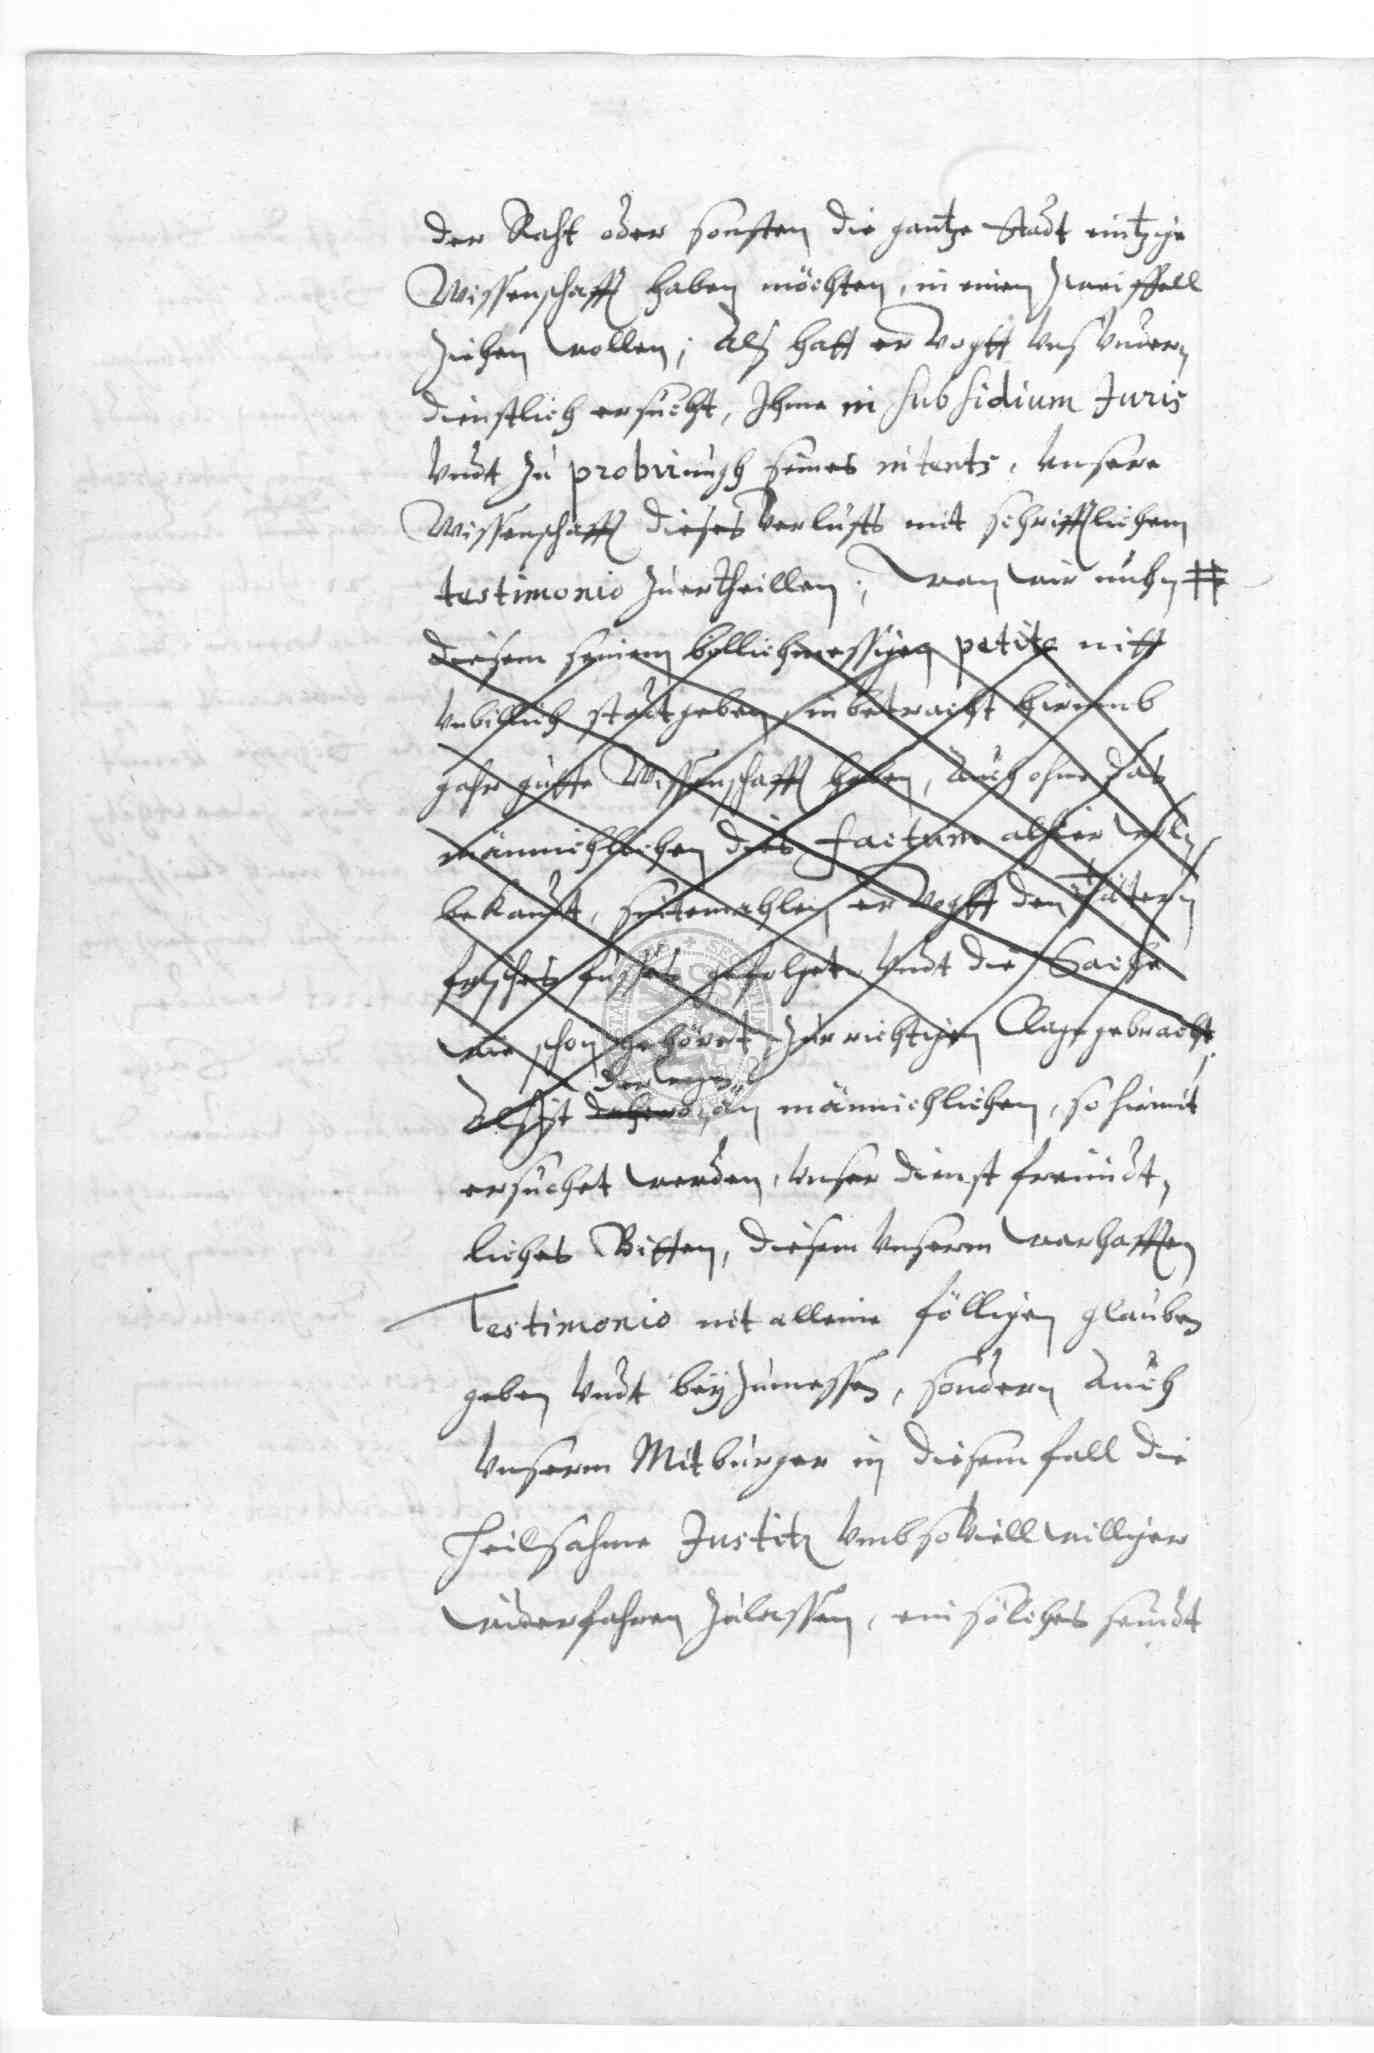 der Raht oder sonsten die gantze Stadt eintzige
Wissenschafft haben möchten, in einen Zweiffell
ziehen wollen; Alß hatt er Vogtt Unß Undern
dienstlich ersucht, Ihme in subsidium Juris
Undt zu probirungh seines intents, Unsere
Wissenschafft dieses Verlusts mit schrifftlichem
testimonio zuertheillen; wan wir nuhn #
diesem seinem billichmessigen petito nitt
Unbillich stadtgeben, in betracht hirumb
gahr gutte Wissenschafft haben, auch ohne das
männichlichen dies factum alhier woll
bekandt, sintemahlen er Vogtt den Thätern
frisches fusses gefolget Undt die Sache
wie schon gehöret, zur richtigen Clage gebracht
derwegen
Alß ist dahero, an männichlichen, so hiemit
ersuchet werden, Unser dienst freundt,
liches Bitten, diesem Unserm warhafften
Testimonio nit alleine fölligen glauben
geben Undt beyzumessen, sondern auch
Unserm Mitburger in diesem fall die
heilsahme Justitz Umb so Viell williger
widerfahren zulassen, ein solches seindt